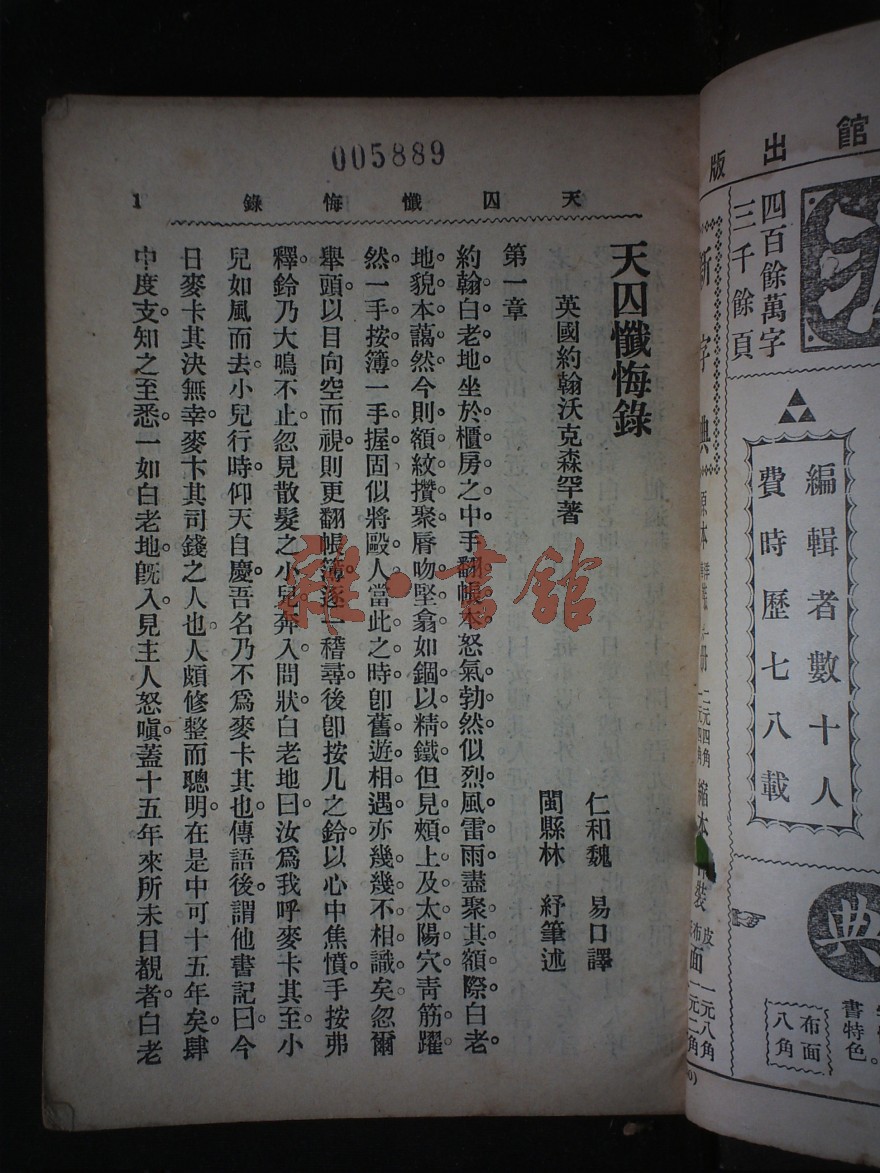 005889
天囚懺悔錄 1
天囚懺悔錄
英國約翰沃克森罕著
仁和魏 易口譯
閩縣林 紓筆述
第一章
約翰白老地坐於櫃房之中手翻帳本怒氣勃然似烈風雷雨盡聚其額際白老
地貌本藹然今則額紋攢聚脣吻堅翕如錮以精鐵但見頰上及太陽穴青筋躍
然一手按簿一手握固似將毆人當此之時卽舊遊相遇亦幾幾不相識矣忽爾
舉頭以目向空而視則更翻帳簿逐一稽尋後卽按几之鈴以心中焦憤手按弗
釋鈴乃大鳴不止忽見散髮之小兒奔入問狀白老地曰汝爲我呼麥卡其至小
兒如風而去小兒行時仰天自慶吾名乃不爲麥卡其也傳語後謂他書記曰今
日麥卡其決無幸麥卡其司錢之人也人頗修整而聰明在是中可十五年矣肆
中度支知之至悉一如白老地旣入見主人怒嗔蓋十五年來所未目覩者白老
雜·書館
館出版
四百餘萬字
三千餘頁
新字典
編輯者數十人
費時歷七八載
典
書特色。
布面
八角